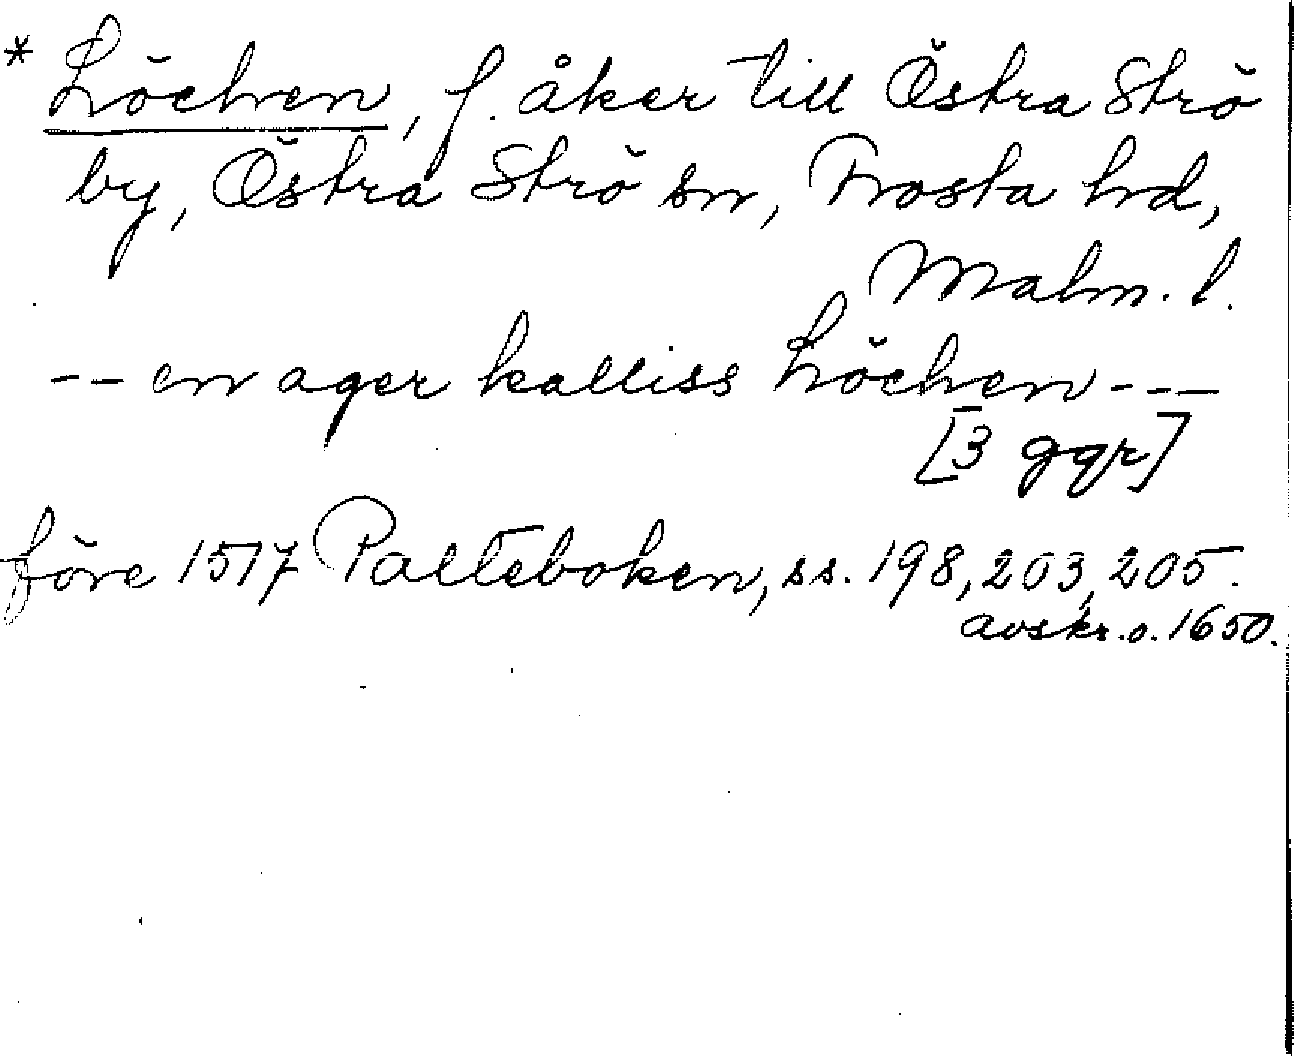 * Löchen, f. åker till Östra Strö
by, Östra Strö sn, Frosta hd,
Malm. l.
-- en ager kalliss Löchen ---
[3 ggr]
före 1517 Palteboken, ss. 198, 203, 205.
avskr. o. 1650.